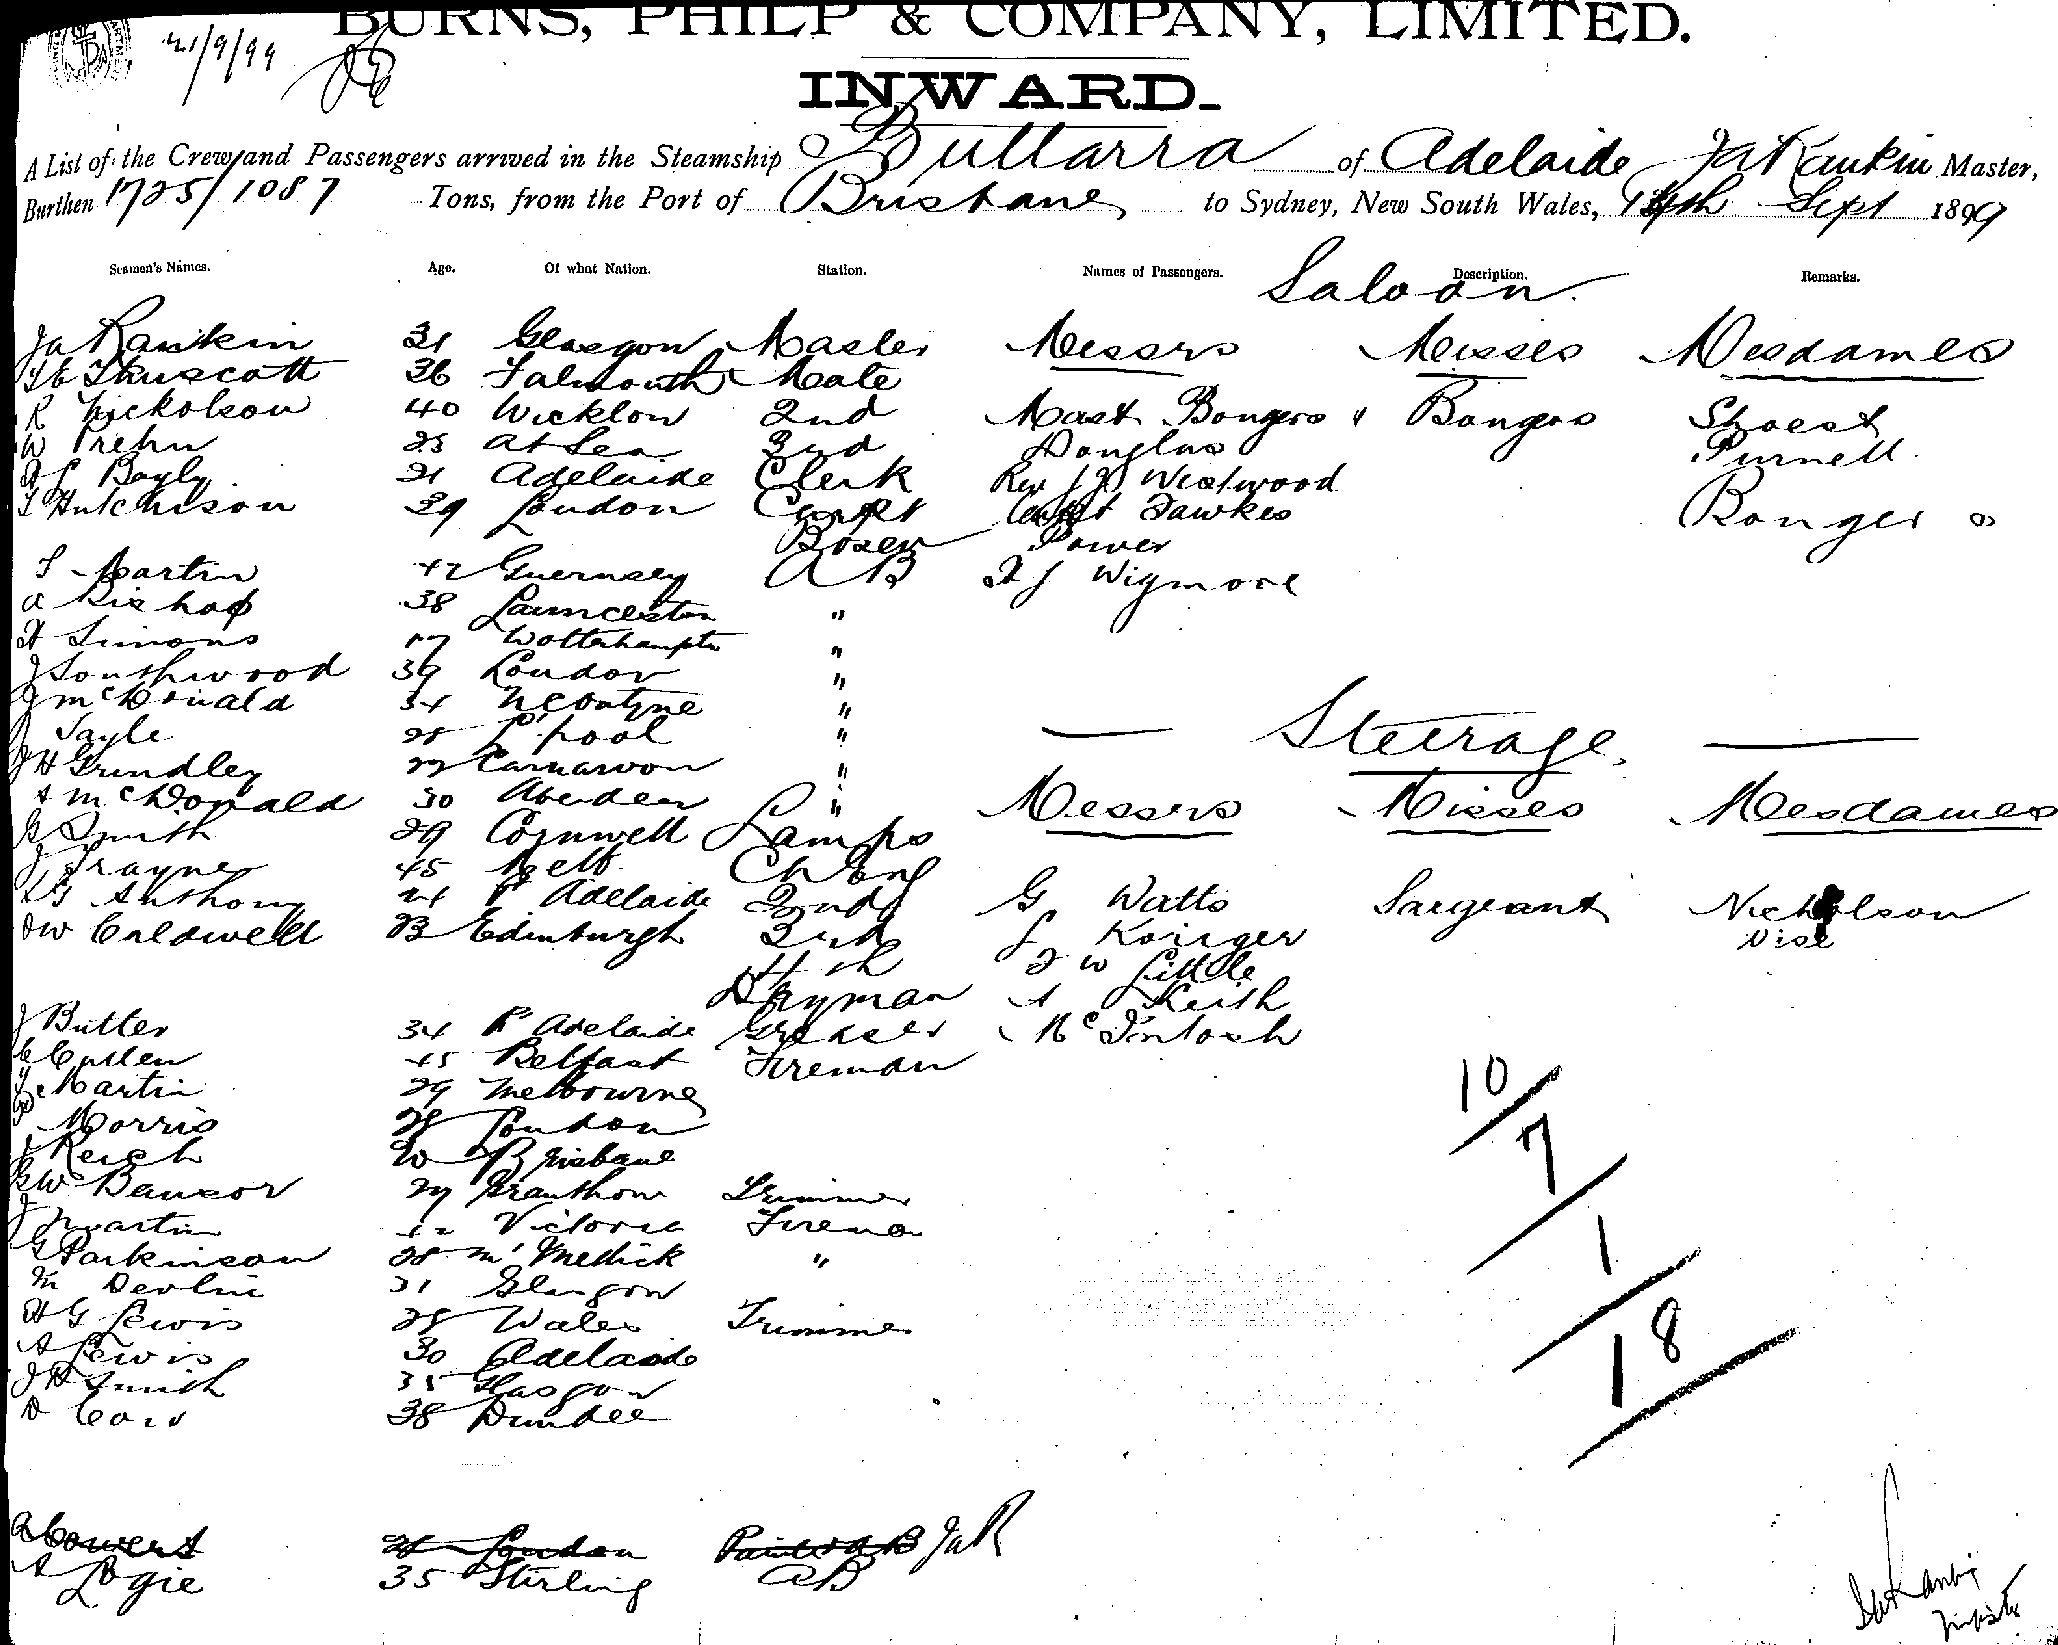 21/9/99
BURNS, PHILP & COMPANY, LIMITED.
INWARD.
A List of the Crew and Passengers arrived in the Steamship Buttarra of Adelaide Ja Rankin Master,
Burthen 1725/1087 Tons, from the Port of Brisbane to Sydney, New South Wales, Sept 1899
Seamen's Names. Age. Of what Nation. Station. Names of Passengers. Description. Remarks.
Saloon.
Ja Rankin 31 Glasgow Master Messrs Misses Mesdames
Truscott 36 Falmouth Mate
R Nickolson 40 Wicklow 2nd Mast Bongers " Bongers Shoest
W Prehn 25 at Sea 3rd Douglas Purnell
Bayly 21 Adelaide Clerk Rev Westwood
Hutchison 39 London Carpt Fawkes Bongers
Bosen Power
Martin 42 Guernsey AB Wigmore
a Bishop 38 Launceston "
H Simons 27 Wolterhampton "
J Southwood 39 London "
J McDonald 34 "
Sayle 25 L'pool "
Steerage.
J H Grindley 27 Carnarvon "
A McDonald 30 Aberdeen " Messrs Misses Mesdames
Smith 29 Cornwell Lamps
J Trayne 45 Melb
Anthony 24 Pt Adelaide 2nd G Watts Sargeant Nicholson
Caldwell 23 Edinburgh 3rd Kruger
4th J W Little
A Keith
J Butter 34 Pt Adelaide Greaser McIntosh
C Cullen 45 Belfast Fireman
Martin 29 Melbourne
Morris 28 London
10
J Reich 20 Brisbane
7
Trimmer
J Martin 42 Victoria Fireman
1
G Parkinson 28 "
M Devlin 31 Glasgow
H G Lewis 28 Wales Trimmer
18
A Lewis 30 Adelaide
J H Smith 35 Glasgow
38 Dundee
London JaR
A Logie 35 Stirling AB
Ja Rankin